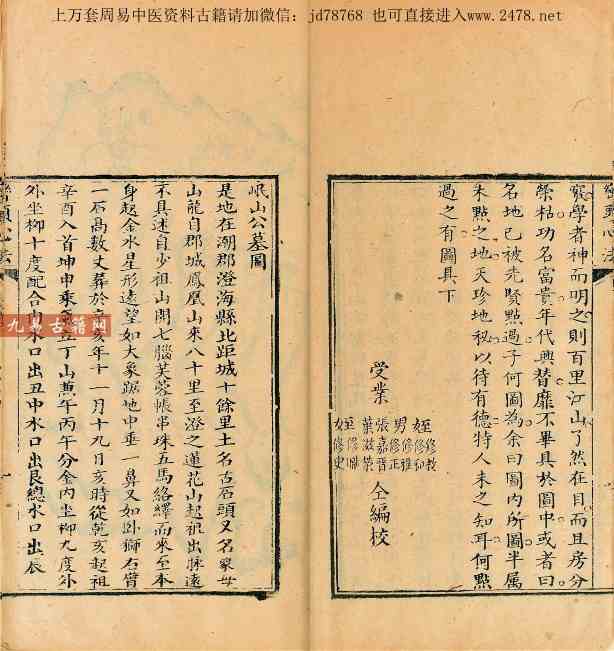 上万套周易中医资料古籍请加微信：jd78768 也可直接进入www.2478.net
巒頭心法
竅學者神而明之則百里江山了然在目而且房分
榮枯功名富貴年代興替靡不畢具於圖中或者曰
名地已被先賢點過子何圖為余曰圖內所圖半属
未點之地天珍地秘以待有德特人未之知耳何點
過之有圖具下
受業
姪修敎
姪修和
男修雅
男修正
張嘉晋
葉滋榮
姪修
女修史
仝編校
岷山公墓圖
是地在潮郡澄海縣北距城十餘里土名古石頭又名象母
山龍自郡城鳳凰山來八十里至澄之蓮花山起祖出脉遠
不具述自少祖山開七腦芙蓉帳串珠五馬絡繹而來至本
身起金水星形遠望如大象踞地中垂一鼻又如卧獅右臂
一石高數丈葬於亥年十一月十九日亥時從乾亥起祖
辛酉入首坤申乘丁山兼午丙午分金內坐柳九度外
外坐柳十度配合內水口出丑申水口出艮總水口出辰
巒頭心法
九易古籍网